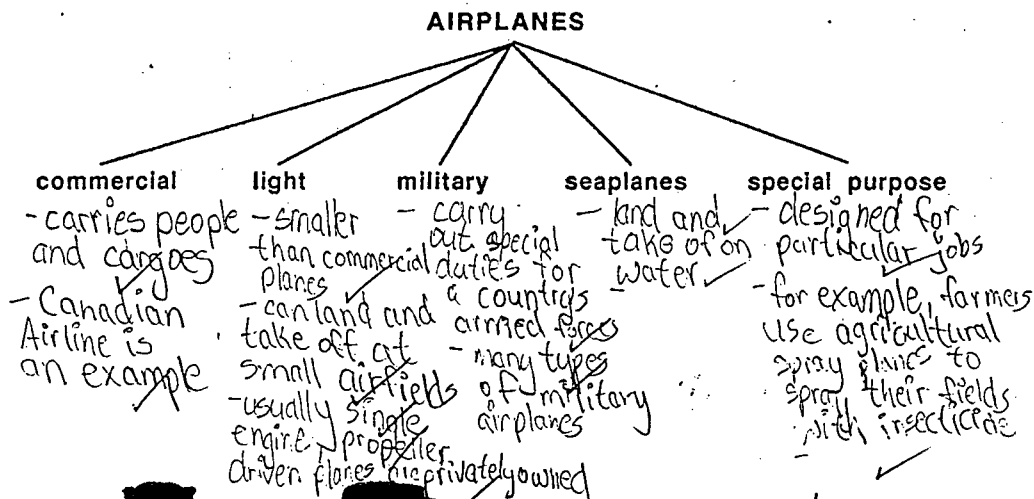 AIRPLANES
commercial
- carries people
and cargoes
- Canadian
Airline is
an example
light
- smaller
than commercial
planes
- can land and
take off at
small airfields
- usually single
engine, propeller
driven planes privately owned
military
- carry
out special
duties for
a countrys
armed forces
- many types
of military
airplanes
seaplanes
- land and
take of on
water
special purpose
- designed for
particular jobs
- for example, farmers
use agricultural
spray planes to
spray their fields
with insecticide